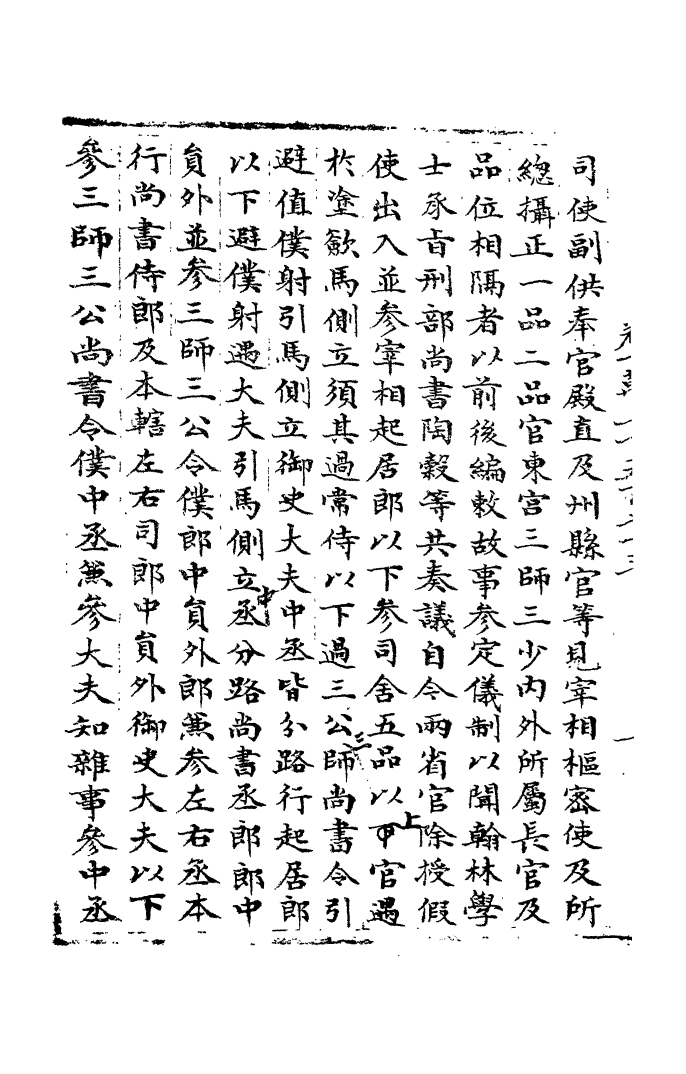 司使副供奉官殿直及州縣官等見宰相樞密使及所
總攝正一品二品官東宮三師三少內外所屬長官及
品位相隔者以前後編敕故事參定儀制以聞翰林學
士承旨刑部尚書陶穀等共奏議自今兩省官除授假
使出入並參宰相起居郎以下參司舍五品以上官遇
於塗歛馬側立須其過常侍以下遇三公三師尚書令引
避值僕射引馬側立御史大夫中丞皆分路行起居郎
以下避僕射遇大夫引馬側立中丞分路尚書丞郎郎中
員外並參三師三公令僕郎中員外郎兼參左右丞本
行尚書侍郎及本轄左右司郎中員外御史大夫以下
參三師三公尚書令僕中丞兼參大夫知雜事參中丞